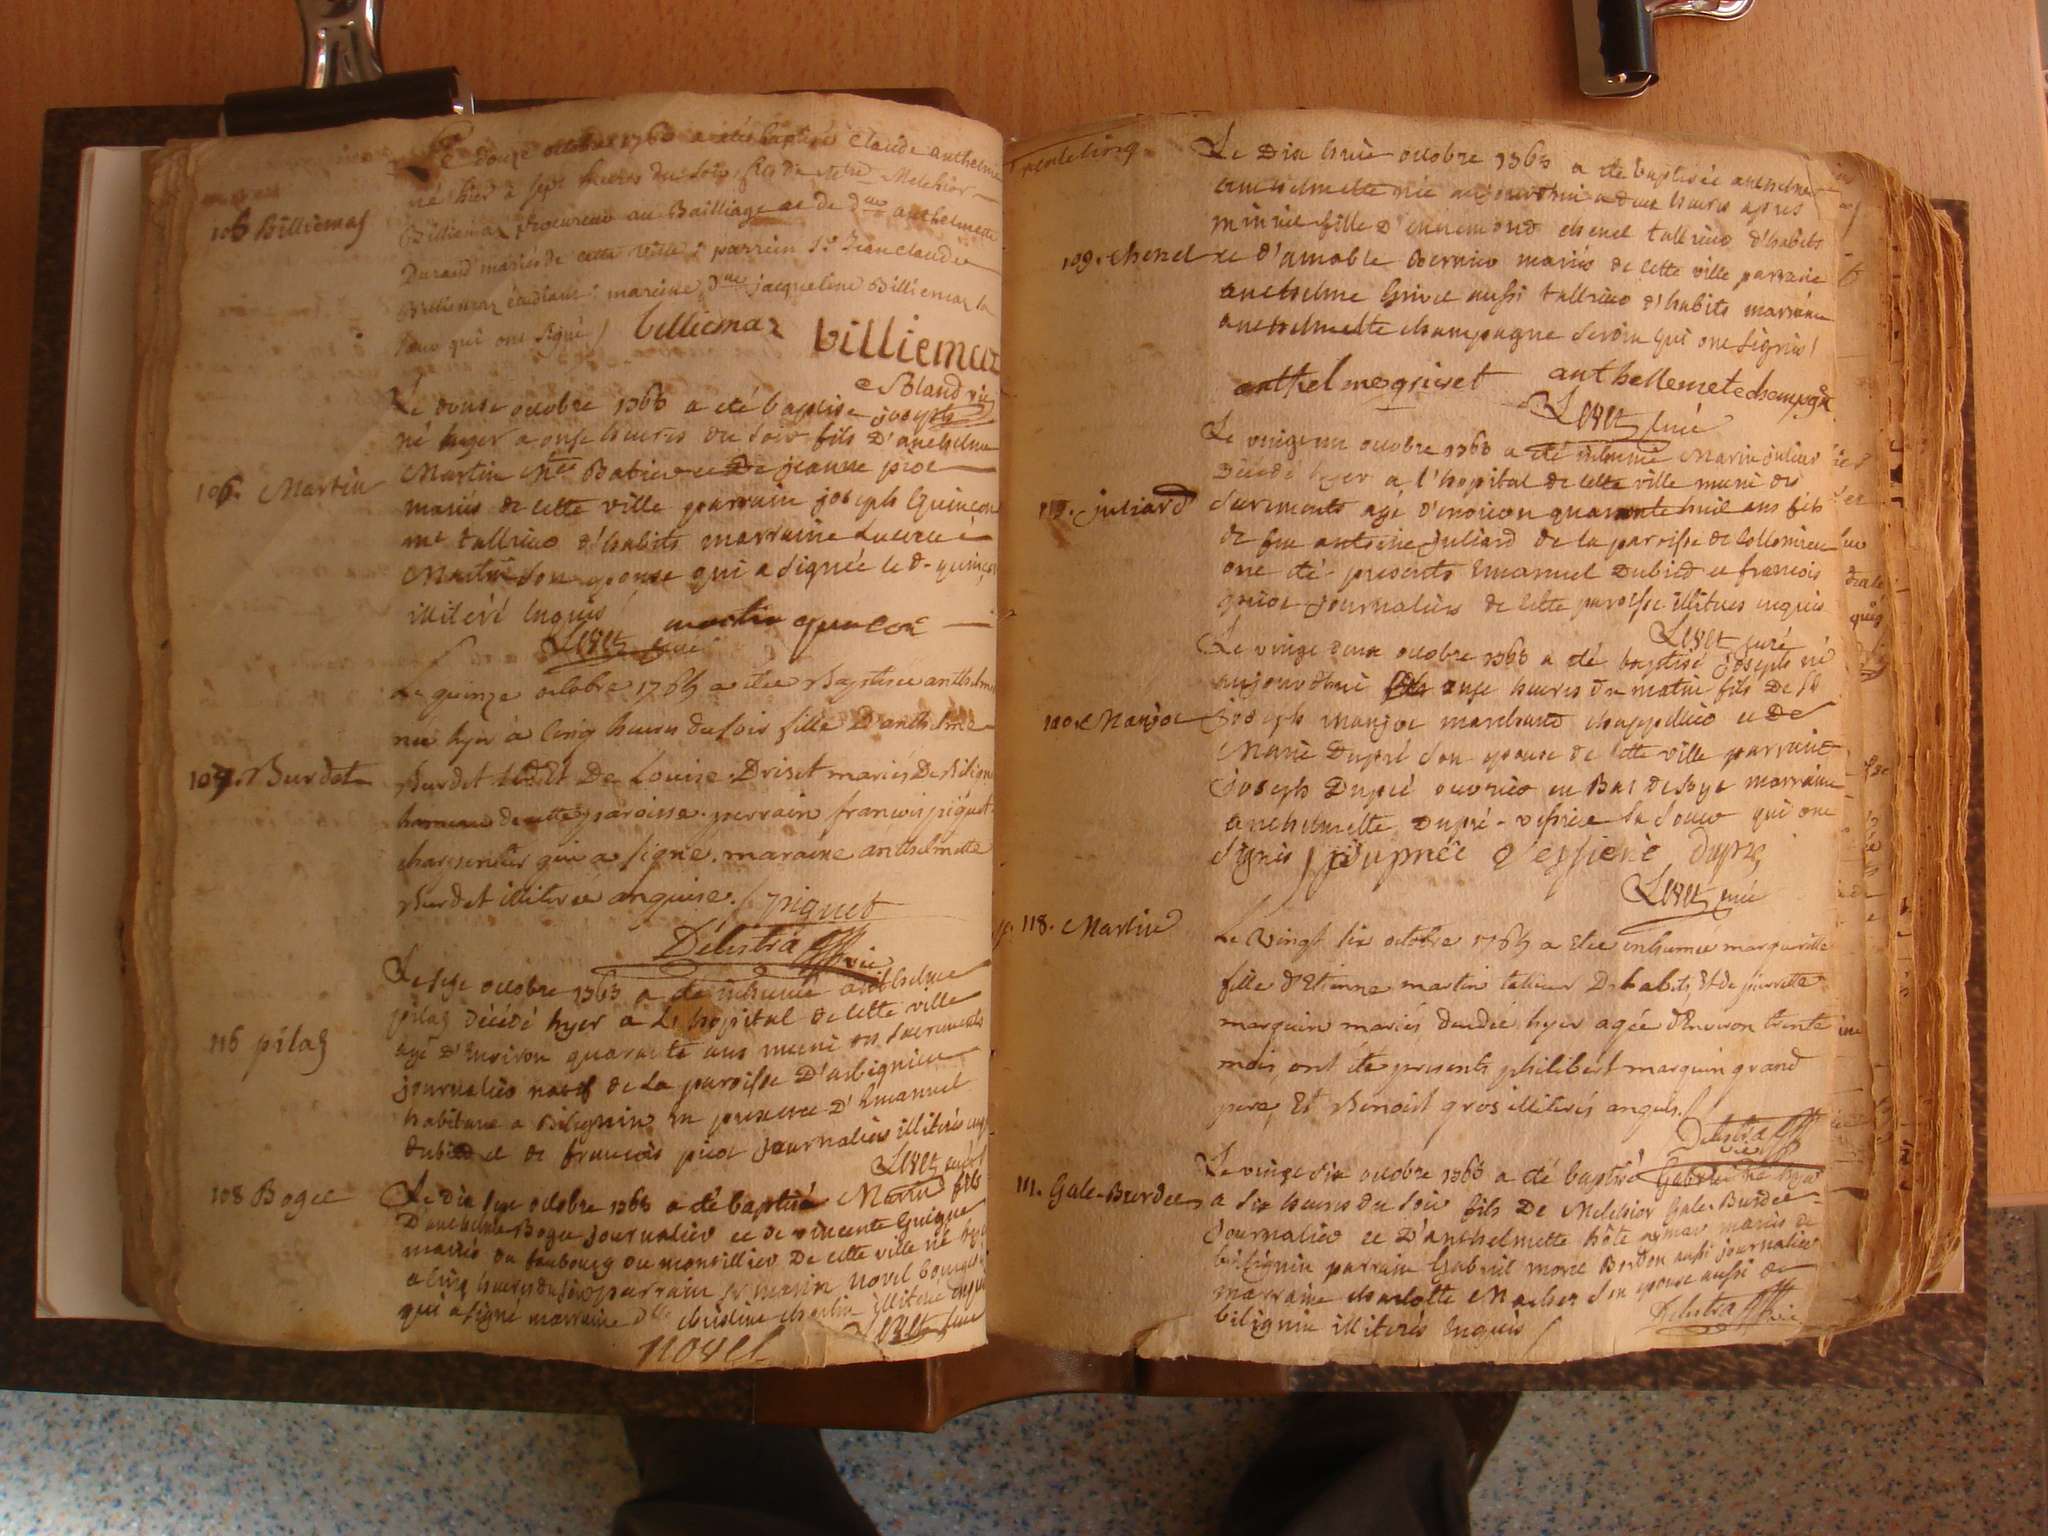 106 Billiemaz
Le douze octobre 1763 a été baptisé Claude anthelme
né hier à sept heures du soir fils de Me Melchior
Billiemaz procureur au Bailliage et de dme anthelmette
Durand mariés de cette ville; parrein Sr Jean Claude
Billiemaz étudiant: mareine dlle jacqueline Billiemaz la
qui ont signé / billiemaz billiemaz
Bland vic
106. Martin
Le douse octobre 1763 a été baptisé joseph
né hyer a onse heures du soir fils D'anthelme
Martin Me Batier et De jeanne
mariés de cette ville parrain joseph Quinçon
me tallieur d'habits marraine
Martin son epouse qui a signée le d. quinçon
illiteré enquis
Levet curé martin quincon
107. Burdet
Le quinze octobre 1763 a étée Baptisée anthelme
née hyer à cinq heures du soir fille D'anthelme
Burdet Et De Louise Driset mariés De Bilignin
hameau de cette paroisse. perrain françois piguet
charpentier qui a signé. maraine anthelmette
Burdet illiterée enquise. / piguet
Délestra vic
116 pilaz
Le seze octobre 1763 a été inhumé anthelme
pilaz décédé hyer a L'hopital de cette ville
agé D'environ quarante ans muni des sacrements
journalier natif de la paroisse D'arbignieu
habitant a Bilignin en presence D'Emanuel
dubied et de françois picot journaliers illiterés enquis
Levet curé
108 Boget
Le dix sept octobre 1763 a été baptisé Marin fils
D'anthelme Boget journalier et de vincente Guigue
mariés du faubourg du montillier De cette ville né hyer
a cinq heures du soir parrain Sr marin Novel bourgeois
qui a signé marraine dlle christine charlin illiterée enquise
Novel Levet curé
trente cinq
109. chenet
Le Dix huit octobre 1763 a été baptisée anthelme
anthelmette née aujourdhui a deux heures apres
minuit fille D'ennemond chenet tallieur d'habits
et d'amable Bernier mariés de cette ville parrain
anthelme Grivet aussi tallieur d'habits marraine
anthelmette champagne qui ont signés /
anthelme grivet anthellemete champagne
Levet curé
117. juliard
Le vingt un octobre 1763 a été inhumé Marin juliard
Décédé hyer a l'hopital de cette ville muni des
sacrements agé d'environ quarante huit ans fils
de feu antoine juliard de la paroisse de Collomieu
ont été presents Emanuel Dubied et francois
picot journaliers de cette paroisse illiterés enquis
Levet curé
110. Manjot
Le vingt deux octobre 1763 a été baptisé joseph né
aujourdhui onse heures du matin fils De Sr
joseph manjot marchand chappellier et De
Marie Dupré son epouse de cette ville parrain
joseph Dupré ouvrier en Bas de soye marraine
anthelmette Dupré veissiere sa soeur qui ont
signés / jDupréé veyssiere dupré
Levet curé
118. Martin
Le vingt six octobre 1763 a étée inhumée marguerite
fille d'Etienne martin tallieur D'habits, Et de pierrette
marquin mariés décédée hyer agée d'Environ trente
mois, ont été presents philibert marquin grand
pere, Et Benoist gros illiterés enquis.
Delestra vic
111. Gale-Burdet
Le vingt six octobre 1763 a été baptisé Gabriel né hyer
a six heures du soir fils De Melchior Gale-Burdet
Journalier et D'anthelmette hôte aymar mariés de
bilignin parrain Gabriel morel Burdon aussi journalier
marraine charlotte son epouse aussi de
bilignin illiterés enquis /
Delestra vic